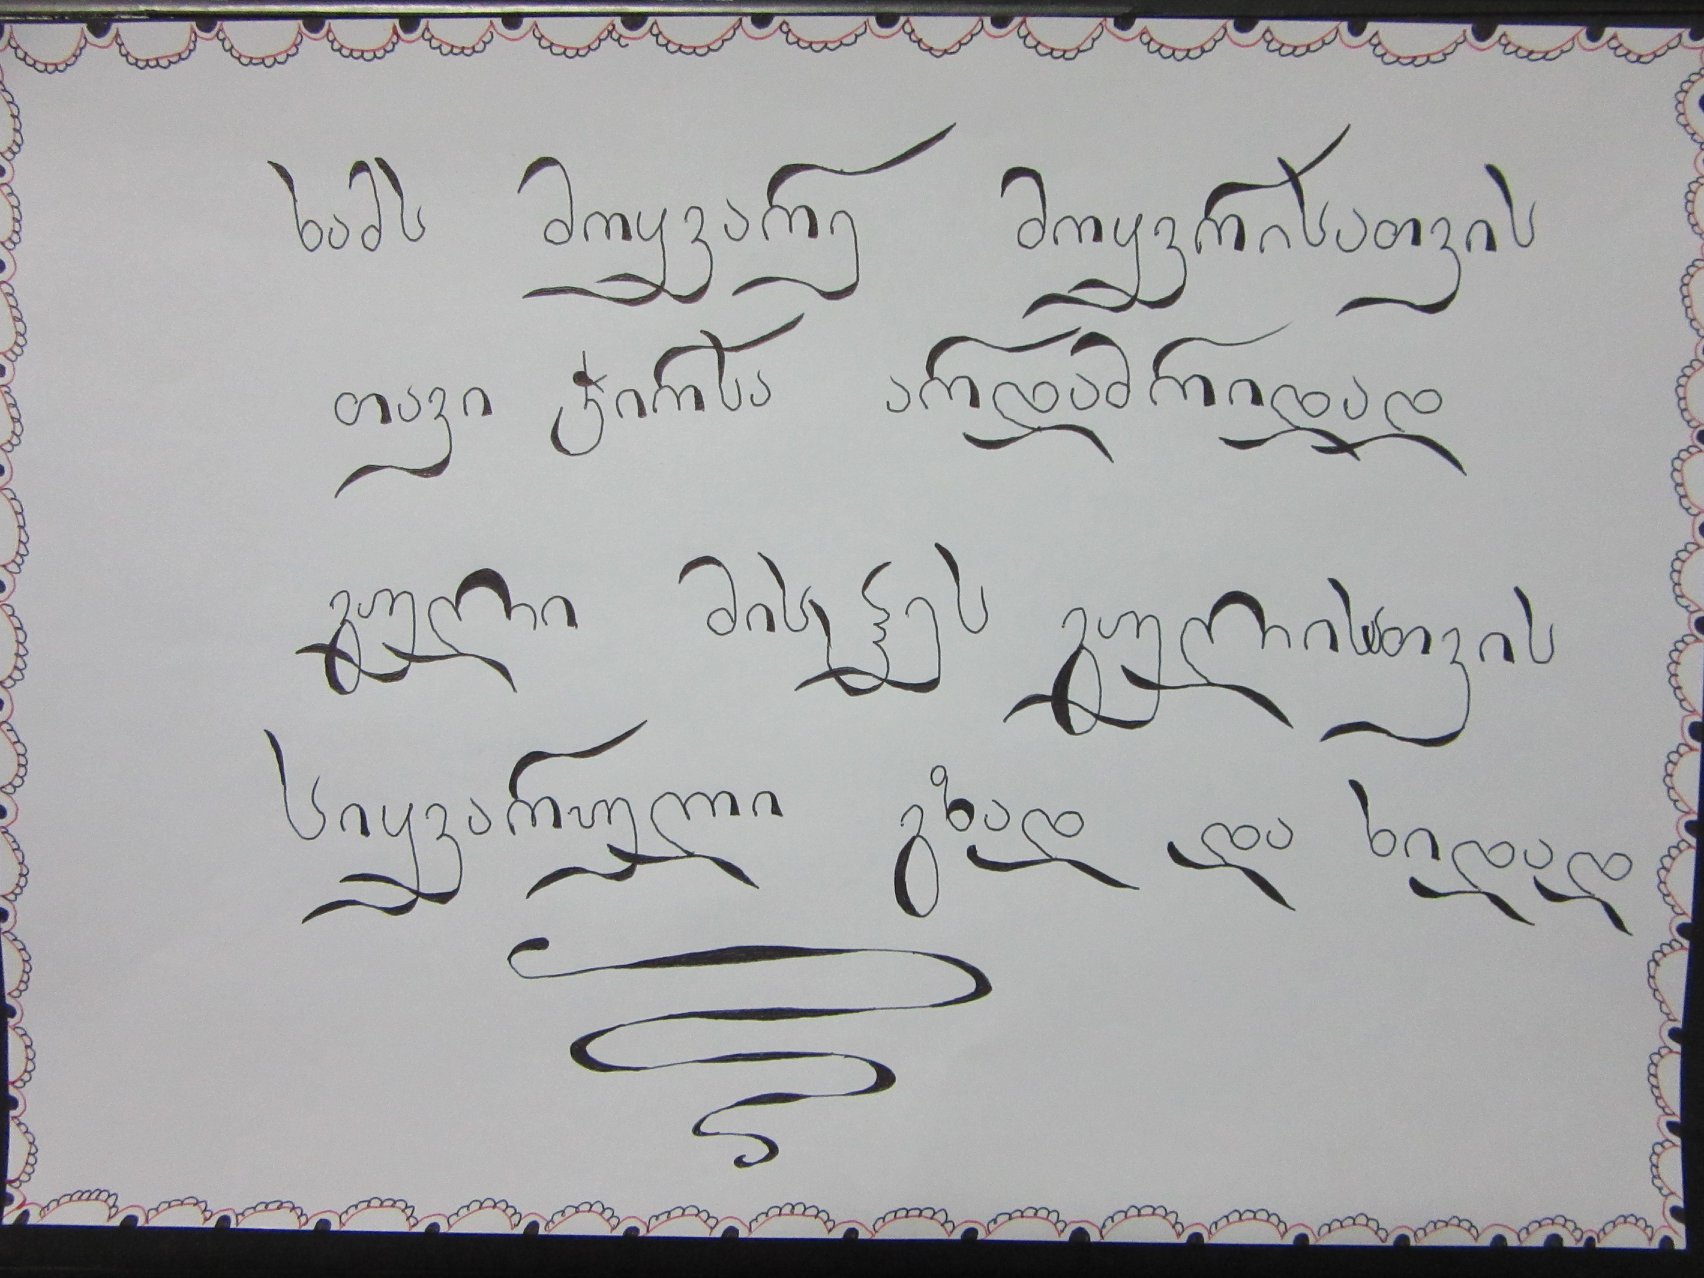 ხამს მოყვარე მოყვრისათვის
თავი ჭირსა არდამრიდად
გული მისცეს გულისათვის
სიყვარული გზად და ხიდად